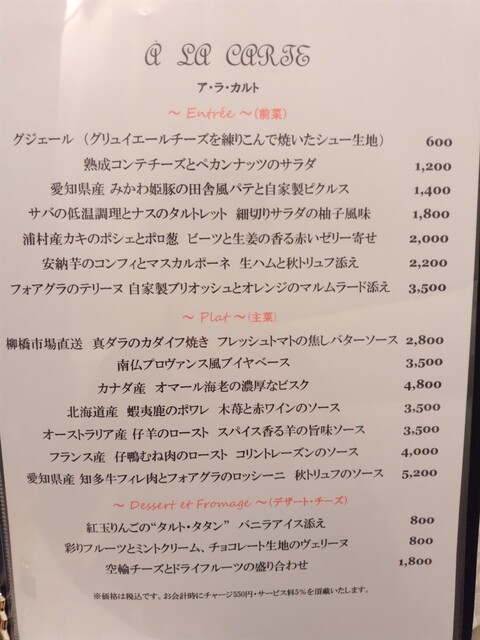 À LA CARTE
ア・ラ・カルト
～ Entrée ～(前菜)
グジェール （グリュイエールチーズを練りこんで焼いたシュー生地） 600
熟成コンテチーズとペカンナッツのサラダ 1,200
愛知県産 みかわ姫豚の田舎風パテと自家製ピクルス 1,400
サバの低温調理とナスのタルトレット 細切りサラダの柚子風味 1,800
浦村産カキのポシェとポロ葱 ビーツと生姜の香る赤いゼリー寄せ 2,000
安納芋のコンフィとマスカルポーネ 生ハムと秋トリュフ添え 2,200
フォアグラのテリーヌ 自家製ブリオッシュとオレンジのマルムラード添え 3,500
～ Plat ～(主菜)
柳橋市場直送 真ダラのカダイフ焼き フレッシュトマトの焦しバターソース 2,800
南仏プロヴァンス風ブイヤベース 3,500
カナダ産 オマール海老の濃厚なビスク 4,800
北海道産 蝦夷鹿のポワレ 木苺と赤ワインのソース 3,500
オーストラリア産 仔羊のロースト スパイス香る羊の旨味ソース 3,500
フランス産 仔鴨むね肉のロースト コリントレーズンのソース 4,000
愛知県産 知多牛フィレ肉とフォアグラのロッシーニ 秋トリュフのソース 5,200
～ Dessert et Fromage ～(デザート・チーズ)
紅玉りんごの“タルト・タタン” バニラアイス添え 800
彩りフルーツとミントクリーム、チョコレート生地のヴェリーヌ 800
空輸チーズとドライフルーツの盛り合わせ 1,800
※価格は税込です。お会計時にチャージ550円・サービス料5％を頂戴いたします。